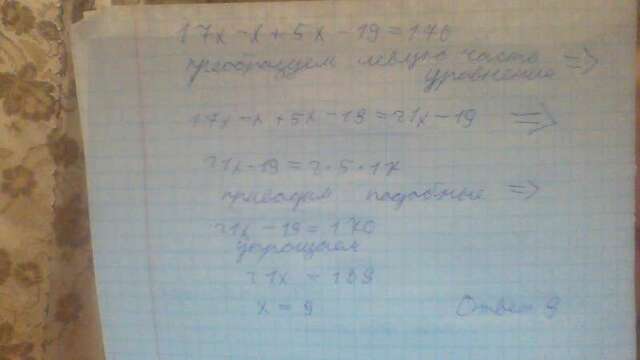 17x - x + 5x - 19 = 170
преобразуем левую часть
уравнения =>
17x - x + 5x - 19 = 21x - 19 =>
21x - 19 = 2·5·17
приводим подобные =>
21x - 19 = 170
упрощаем
21x = 189
x = 9
Ответ 9